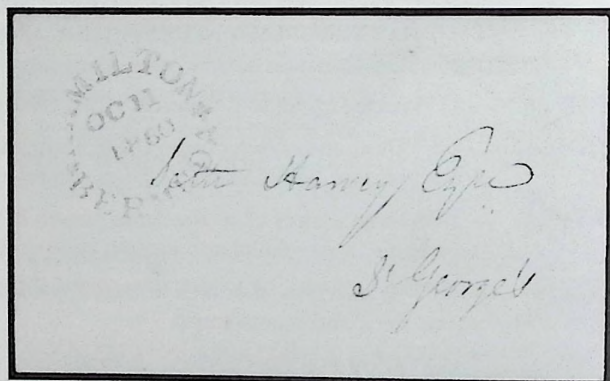 MILTON
OC 11
1860
BER
Harvey Esqr
St George's